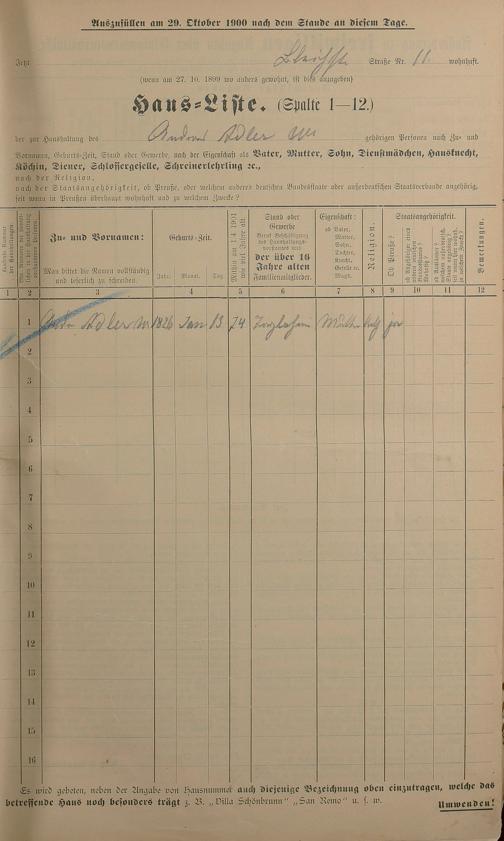 Auszufüllen am 29. Oktober 1900 nach dem Stande an diesem Tage.
Jetzt Bleichstr Straße Nr. 11. wohnhaft.
(wenn am 27. 10. 1899 wo anders gewohnt, ist dies anzugeben)
Haus-Liste. (Spalte 1—12.)
der zur Haushaltung des Andreas Adler gehörigen Personen nach Zu- und
Vornamen, Geburts-Zeit, Stand oder Gewerbe, nach der Eigenschaft als Vater, Mutter, Sohn, Dienstmädchen, Hausknecht,
Köchin, Diener, Schlossergeselle, Schreinerlehrling ꝛc.,
nach der Religion,
nach der Staatsangehörigkeit, ob Preuße, oder welchem anderen deutschen Bundesstaate oder außerdeutschen Staatsverbande angehörig,
seit wann in Preußen überhaupt wohnhaft und zu welchem Zwecke?
Zu- und Vornamen:
Man bittet die Namen vollständig
und leserlich zu schreiben.
Geburts-Zeit.
Jahr. Monat. Tag.
Mithin am 1. 4. 1901
wie viel Jahre alt
Stand oder
Gewerbe
Beruf Beschäftigung
des Haushaltungs-
vorstandes und
der über 16
Jahre alten
Familienmitglieder.
Eigenschaft:
ob Vater,
Mutter,
Sohn,
Tochter,
Knecht,
Geselle ꝛc.
Magd.
Religion.
Staatsangehörigkeit.
Ob Preuße?
Bemerkungen.
1 2 3 4 5 6 7 8 9 10 11 12
1 Adler 1826 Jan 13 74
2
3
4
5
6
7
8
9
10
11
12
13
14
15
16
Es wird gebeten, neben der Angabe von Hausnummer auch diejenige Bezeichnung oben einzutragen, welche das
betreffende Haus noch besonders trägt z. B. „Villa Schönbrunn" „San Remo" u. s. w.
Umwenden!